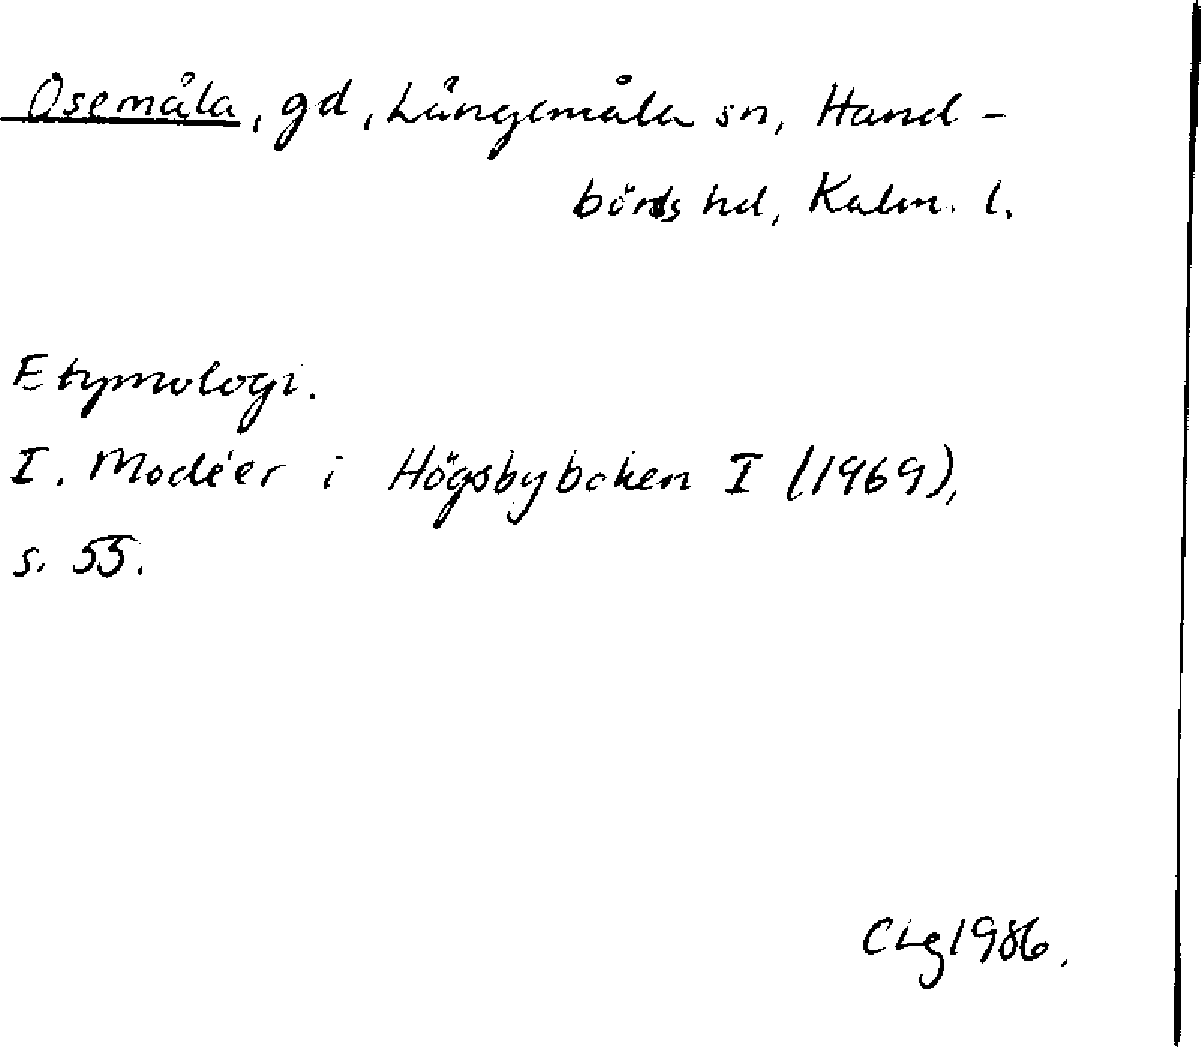 Osemåla, gd, Långemåla sn, Hand-
börds hd, Kalm. l.
Etymologi.
I. Modéer i Högsbyboken I (1969),
s. 55.
CLg 1986.